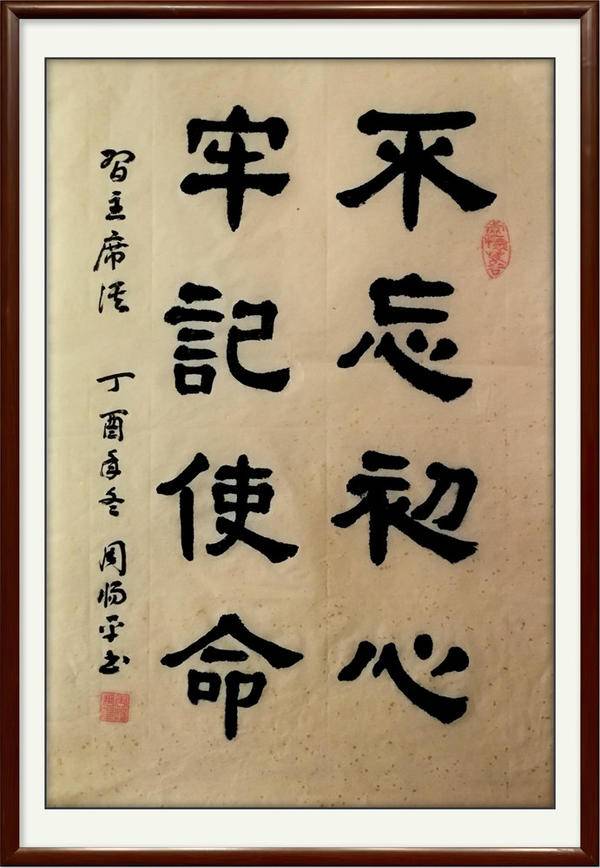 不忘初心
牢記使命
習主席語 丁酉年冬 周暢平书